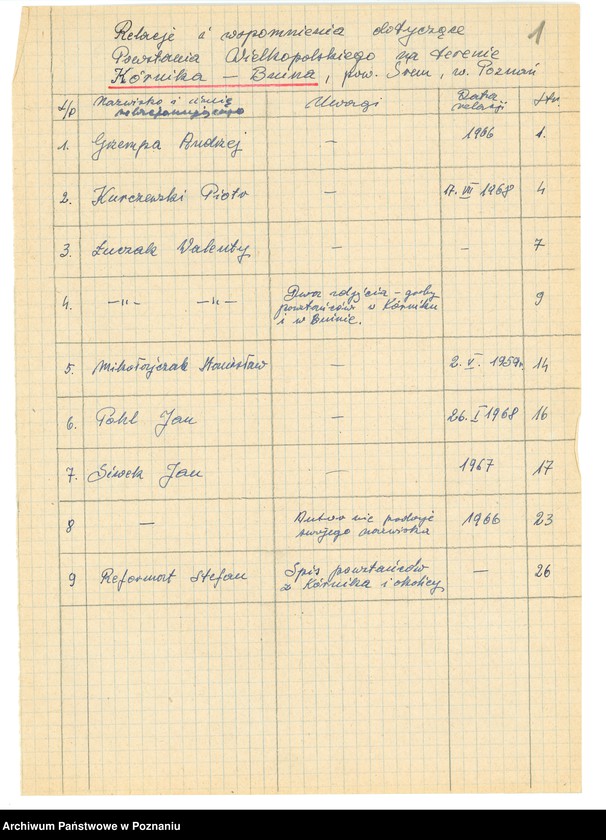 Relacje i wspomnienia dotyczące
1
Powstania Wielkopolskiego na terenie
Kórnika – Bnina, pow. Śrem, w. Poznań
L/p Nazwisko i imię relacjonującego Uwagi Data relacji str.
1. Grzempa Andrzej — 1966 1.
2. Kurczewski Piotr — 17. VII 1968 4
3. Łuczak Walenty — — 7
4. —"— —"— Dwa zdjęcia – groby
powstańców w Kórniku
i w Bninie. 9
5. Mikołajczak Stanisław — 2. V. 1957r. 14
6. Pohl Jan — 26. I 1968 16
7. Siwek Jan — 1967 17
8 — Autor nie podaje
swojego nazwiska 1966 23
9 Reformat Stefan Spis powstańców
z Kórnika i okolicy — 26
Archiwum Państwowe w Poznaniu